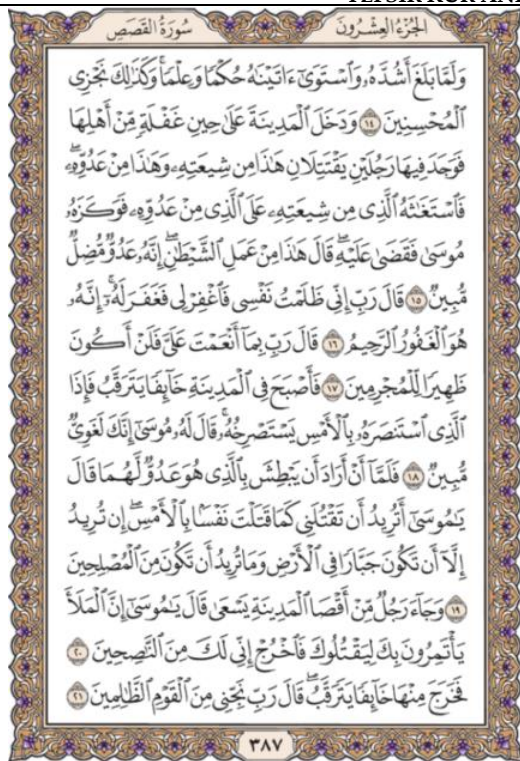 سُورَةُ القَصَصِ الجُزْءُ العِشْرُونَ
وَلَمَّا بَلَغَ أَشُدَّهُۥ وَٱسْتَوَىٰٓ ءَاتَيْنَٰهُ حُكْمًا وَعِلْمًاۚ وَكَذَٰلِكَ نَجْزِى
ٱلْمُحْسِنِينَ ١٤ وَدَخَلَ ٱلْمَدِينَةَ عَلَىٰ حِينِ غَفْلَةٍ مِّنْ أَهْلِهَا
فَوَجَدَ فِيهَا رَجُلَيْنِ يَقْتَتِلَانِ هَٰذَا مِن شِيعَتِهِۦ وَهَٰذَا مِنْ عَدُوِّهِۦۖ
فَٱسْتَغَٰثَهُ ٱلَّذِى مِن شِيعَتِهِۦ عَلَى ٱلَّذِى مِنْ عَدُوِّهِۦ فَوَكَزَهُۥ
مُوسَىٰ فَقَضَىٰ عَلَيْهِۖ قَالَ هَٰذَا مِنْ عَمَلِ ٱلشَّيْطَٰنِۖ إِنَّهُۥ عَدُوٌّ مُّضِلٌّ
مُّبِينٌ ١٥ قَالَ رَبِّ إِنِّى ظَلَمْتُ نَفْسِى فَٱغْفِرْ لِى فَغَفَرَ لَهُۥٓۚ إِنَّهُۥ
هُوَ ٱلْغَفُورُ ٱلرَّحِيمُ ١٦ قَالَ رَبِّ بِمَآ أَنْعَمْتَ عَلَىَّ فَلَنْ أَكُونَ
ظَهِيرًا لِّلْمُجْرِمِينَ ١٧ فَأَصْبَحَ فِى ٱلْمَدِينَةِ خَآئِفًا يَتَرَقَّبُ فَإِذَا
ٱلَّذِى ٱسْتَنصَرَهُۥ بِٱلْأَمْسِ يَسْتَصْرِخُهُۥۚ قَالَ لَهُۥ مُوسَىٰٓ إِنَّكَ لَغَوِىٌّ
مُّبِينٌ ١٨ فَلَمَّآ أَنْ أَرَادَ أَن يَبْطِشَ بِٱلَّذِى هُوَ عَدُوٌّ لَّهُمَا قَالَ
يَٰمُوسَىٰٓ أَتُرِيدُ أَن تَقْتُلَنِى كَمَا قَتَلْتَ نَفْسًۢا بِٱلْأَمْسِۖ إِن تُرِيدُ
إِلَّآ أَن تَكُونَ جَبَّارًا فِى ٱلْأَرْضِ وَمَا تُرِيدُ أَن تَكُونَ مِنَ ٱلْمُصْلِحِينَ
١٩ وَجَآءَ رَجُلٌ مِّنْ أَقْصَا ٱلْمَدِينَةِ يَسْعَىٰ قَالَ يَٰمُوسَىٰٓ إِنَّ ٱلْمَلَأَ
يَأْتَمِرُونَ بِكَ لِيَقْتُلُوكَ فَٱخْرُجْ إِنِّى لَكَ مِنَ ٱلنَّٰصِحِينَ ٢٠
فَخَرَجَ مِنْهَا خَآئِفًا يَتَرَقَّبُۖ قَالَ رَبِّ نَجِّنِى مِنَ ٱلْقَوْمِ ٱلظَّٰلِمِينَ ٢١
٣٨٧